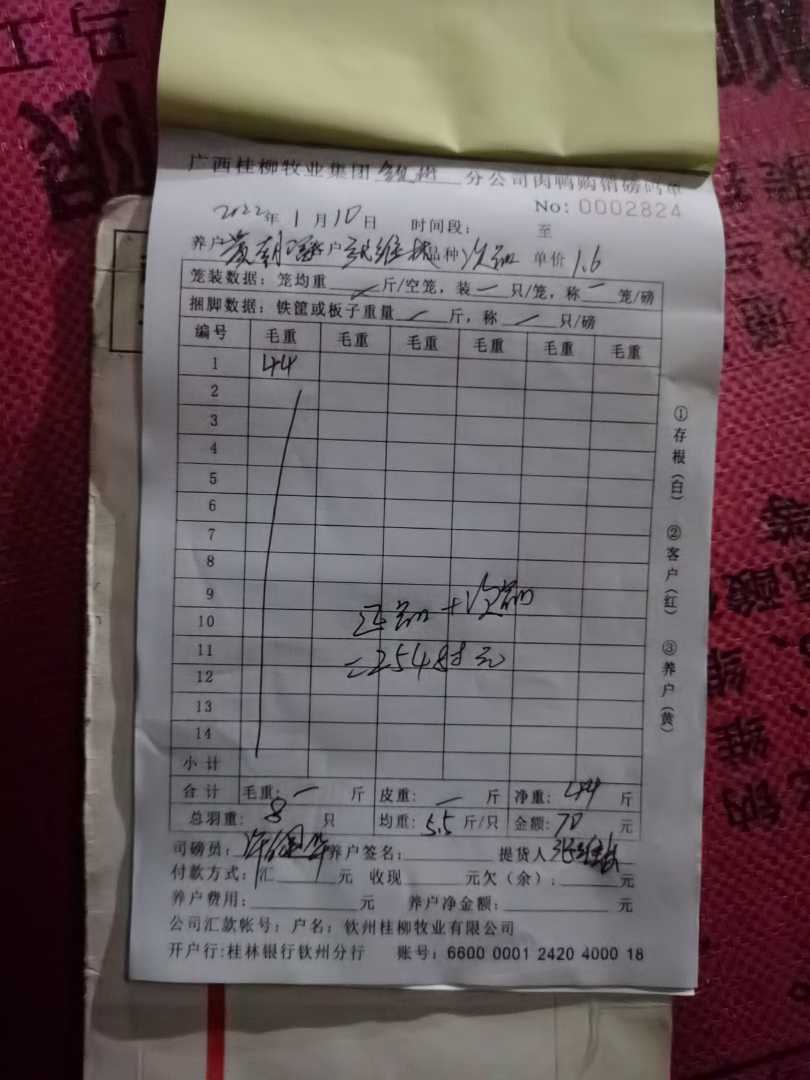 广西桂柳牧业集团 钦州 分公司肉鸭购销磅码单
No: 0002824
2022年 1 月 10 日 时间段: 至
养户 户 品种 次鸭 单价 1.6
笼装数据: 笼均重 斤/空笼, 装 一 只/笼, 称 一 笼/磅
捆脚数据: 铁筐或板子重量 斤, 称 只/磅
编号 毛重 毛重 毛重 毛重 毛重 毛重
1 44
2
3
4
5
6
7
8
9
10
11
12
13
14
正鸭+次鸭
=2548 元
小计
合计 毛重: 一 斤 皮重: 一 斤 净重: 44 斤
总羽重: 8 只 均重: 5.5 斤/只 金额: 70 元
司磅员: 养户签名: 提货人
付款方式: 汇 元 收现 元欠(余): 元
养户费用: 元 养户净金额: 元
公司汇款帐号: 户名: 钦州桂柳牧业有限公司
开户行:桂林银行钦州分行 账号: 6600 0001 2420 4000 18
①存根(白) ②客户(红) ③养户(黄)